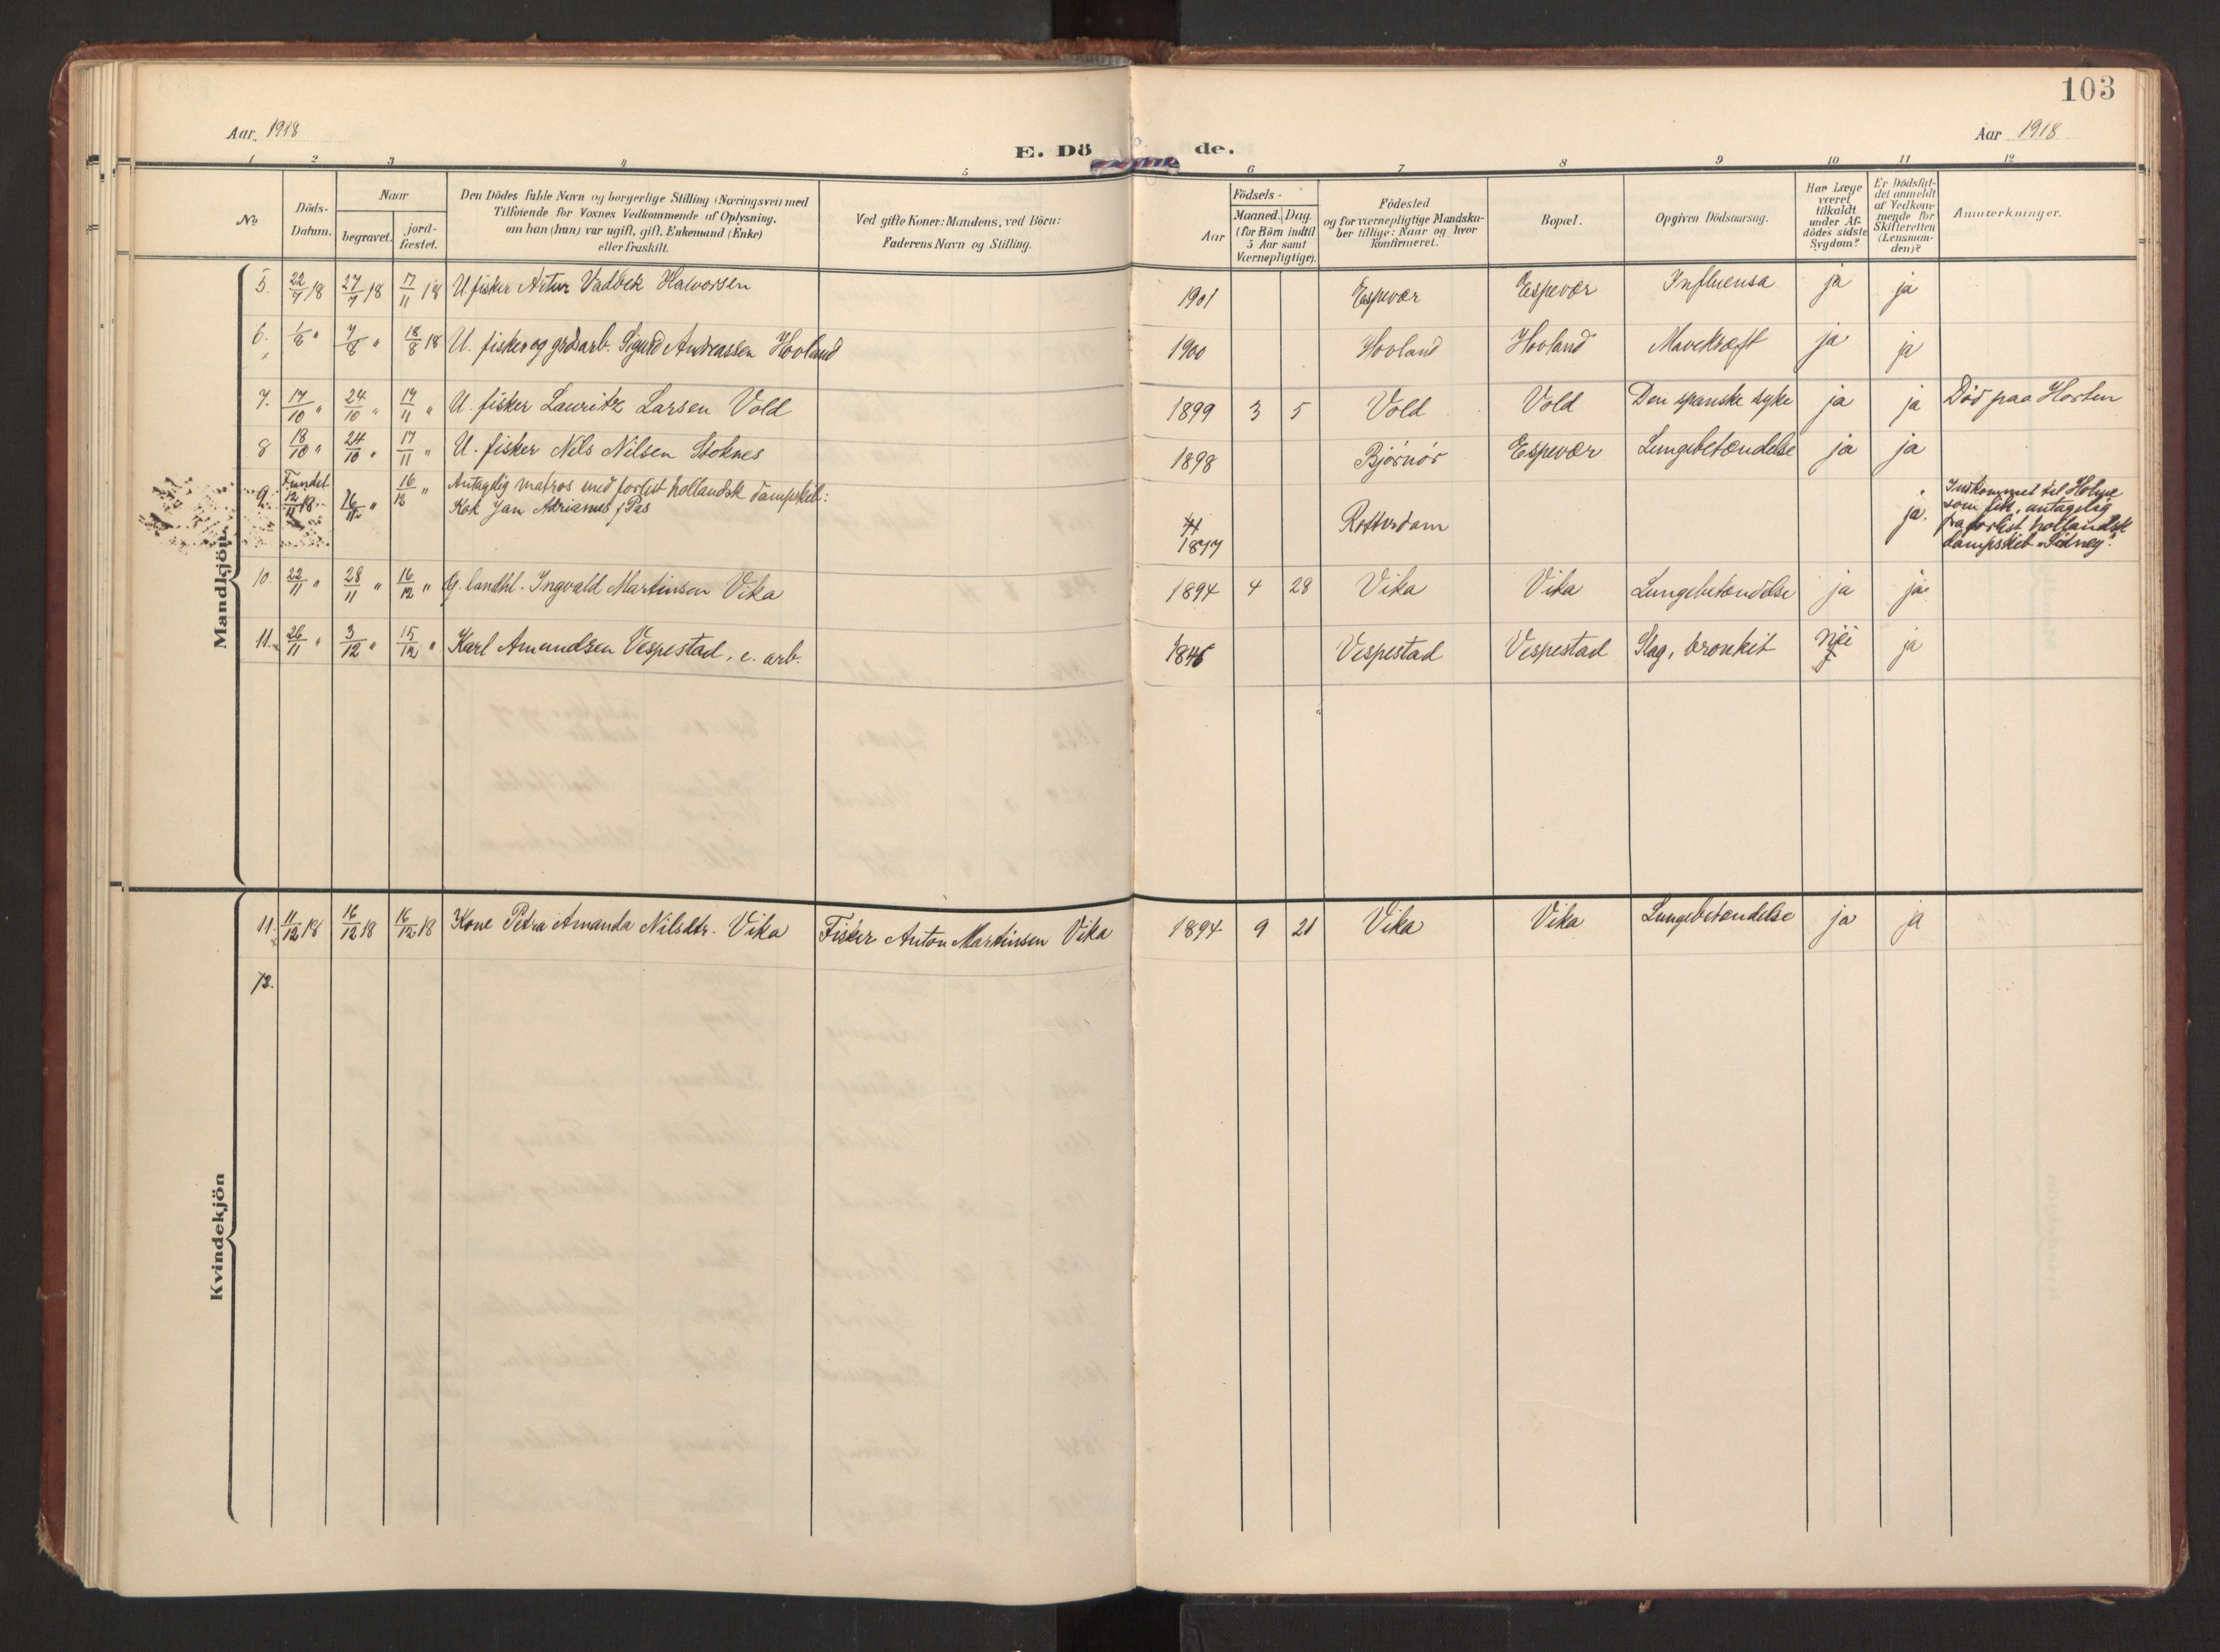 103
Aar 1918
Aar 1918
E. Dö de.
1 2 3 4 5 6 7 8 9 10 11 12
No.
Döds-
Datum.
Naar
begravet.
jord-
fæstet.
Den Dödes fulde Navn og borgerlige Stilling (Næringsvei) med
Tilföiende for Voxnes Vedkommende af Oplysning,
om han (hun) var ugift, gift, Enkemand (Enke)
eller fraskilt.
Ved gifte Koner: Mandens, ved Börn:
Faderens Navn og Stilling.
Födsels-
Aar
Maaned. Dag.
(for Börn indtil
5 Aar samt
Værnepligtige).
Födested
og for værnepligtige Mandska-
ber tillige: Naar og hvor
konfirmeret.
Bopæl.
Opgiven Dödsaarsag.
Har Læge
været
tilkaldt
under Af-
dödes sidste
Sygdom?
Er Dödsfal-
det anmeldt
af Vedkom-
mende for
Skifteretten
(Lensman-
den)?
Anmærkninger.
Mandkjön.
5. 22/7 18 27/7 18 17/11 18 U. fisker Artur Vadbek Halvorsen 1901 Espevær Espevær Influensa ja ja
6. 1/8 " 7/8 " 18/8 18 U. fisker og grdsarb. Sigurd Andreassen Hovland 1900 Hovland Hovland Mavekræft ja ja
7. 17/10 " 24/10 " 17/11 " U. fisker Lauritz Larsen Vold 1899 3 5 Vold Vold Den spanske syke ja ja Død paa Horten
8 18/10 " 24/10 " 17/11 " U. fisker Nils Nilsen Stoknes 1898 Bjørnør Espevær Lungebetændelse ja ja
9. Fundet 12/11 18 16/11 " 16/12 " Antagelig matros med forlist hollandsk dampskib:
Kok Jan Adrianus Pas 1877 Rotterdam ja.
Indkommet til Holme
som lik, antagelig
fra forlist hollandsk
dampskib "Sidney".
10. 22/11 " 28/11 " 16/12 " G. landhl. Ingvald Martinsen Vika 1894 4 28 Vika Vika Lungebetændelse ja ja
11. 26/11 " 3/12 " 15/12 " Karl Amundsen Vespestad, e. arb. 1846 Vespestad Vespestad Slag, bronkit nei ja
Kvindekjön
11. 11/12 18 16/12 18 16/12 18 Kone Petra Amanda Nilsdtr. Vika Fisker Anton Martinsen Vika 1894 9 21 Vika Vika Lungebetændelse ja ja
12.